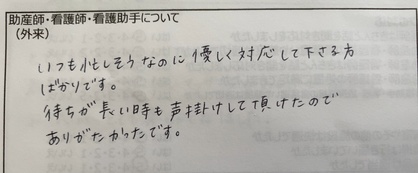 助産師・看護師・看護助手について
(外来)
いつも忙しそうなのに優しく対応して下さる方
ばかりです。
待ちが長い時も声掛けして頂けたので
ありがたかったです。